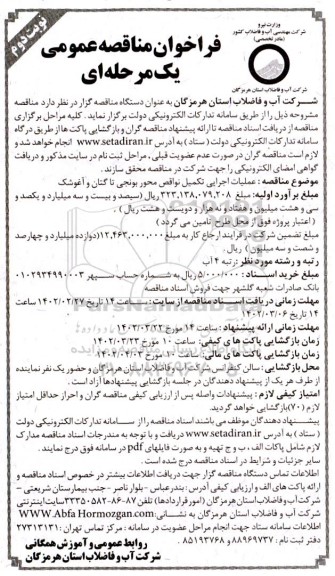 وزارت نیرو
شرکت مهندسی آب و فاضلاب کشور
(مادر تخصصی)
شرکت آب و فاضلاب استان هرمزگان
نوبت دوم
فراخوان مناقصه عمومی
یک مرحله‌ای
شرکت آب و فاضلاب استان هرمزگان به عنوان دستگاه مناقصه گزار در نظر دارد مناقصه
مشروحه ذیل را از طریق سامانه تدارکات الکترونیکی دولت برگزار نماید. کلیه مراحل برگزاری
مناقصه از دریافت اسناد مناقصه تا ارائه پیشنهاد مناقصه گران و بازگشایی پاکت ها از طریق درگاه
سامانه تدارکات الکترونیکی دولت (ستاد) به آدرس www.setadiran.ir انجام خواهد شد و
لازم است مناقصه گران در صورت عدم عضویت قبلی، مراحل ثبت نام در سایت مذکور و دریافت
گواهی امضای الکترونیکی را جهت شرکت در مناقصه محقق سازند.
موضوع مناقصه: عملیات اجرایی تکمیل نواقص محور یونجی تا گتان و آغوشک
مبلغ برآورد اولیه: مبلغ ۳۲۳,۱۳۸,۰۷۹,۲۰۸ ریال (سیصد و بیست و سه میلیارد و یکصد و
سی و هشت میلیون و هفتاد و نه هزار و دویست و هشت ریال).
(اعتبار پروژه فوق از محل طرح تامین می گردد)
مبلغ تضمین شرکت در فرآیند ارجاع کار به مبلغ ۱۲,۴۶۳,۰۰۰,۰۰۰ (دوازده میلیارد و چهارصد
و شصت و سه میلیون) ریال.
رتبه و رشته مورد نظر: رتبه ۴ آب
مبلغ خرید اسناد: ۵/۰۰۰/۰۰۰ ریال به شماره حساب سپهر ۰۱۰۲۹۳۴۹۹۰۰۰۳
بانک صادرات شعبه گلشهر جهت فروش اسناد مناقصه
مهلت زمانی دریافت اسناد مناقصه از سایت: ساعت ۱۴ تاریخ ۱۴۰۳/۰۲/۲۷ تا ساعت
۱۴ تاریخ ۱۴۰۳/۰۳/۰۶
مهلت زمانی ارائه پیشنهاد: ساعت ۱۴ مورخ ۱۴۰۳/۰۳/۲۲
زمان بازگشایی پاکت های کیفی: ساعت ۱۰ مورخ ۱۴۰۳/۰۳/۲۳
زمان بازگشایی پاکت های مالی: ساعت ۱۰ مورخ ۱۴۰۳/۰۴/۰۳
محل بازگشایی: سالن کنفرانس شرکت آب و فاضلاب استان هرمزگان و حضور یک نفر نماینده
از طرف هر یک از پیشنهاد دهندگان در جلسه بازگشایی پیشنهادها آزاد است.
امتیاز کیفی لازم: پیشنهادات واصله پس از ارزیابی کیفی مناقصه گران و احراز حداقل امتیاز
لازم (۷۰) بازگشایی خواهد گردید.
پیشنهاد دهندگان موظف می باشند اسناد مناقصه را از سامانه تدارکات الکترونیکی دولت
(ستاد) به آدرس www.setadiran.ir دریافت و با توجه به مندرجات اسناد مناقصه مدارک
لازم شامل پاکات الف، ب و ج تهیه و به صورت فایلهای pdf در سامانه فوق درج نمایند.
سایر جزئیات و شرایط در اسناد مناقصه درج شده است.
اطلاعات تماس دستگاه مناقصه گزار جهت دریافت اطلاعات بیشتر در خصوص اسناد مناقصه و
ارائه پاکت های الف و ارزیابی کیفی آدرس: بندرعباس - بلوار ناصر - جنب بیمارستان شریعتی -
شرکت آب و فاضلاب استان هرمزگان (امور قراردادها) تلفن ۸۷-۳۳۳۵۰۵۸۲-۸۶ سایت اینترنتی
شرکت آب و فاضلاب هرمزگان به نشانی: WWW.Abfa Hormozgan.com
اطلاعات سامانه ستاد جهت انجام مراحل عضویت در سامانه: مرکز تماس تهران: ۲۷۳۱۳۱۳۱
دفتر ثبت نام: ۸۸۹۶۹۷۳۷ و ۸۵۱۹۳۷۶۸.
روابط عمومی و آموزش همگانی
شرکت آب و فاضلاب استان هرمزگان